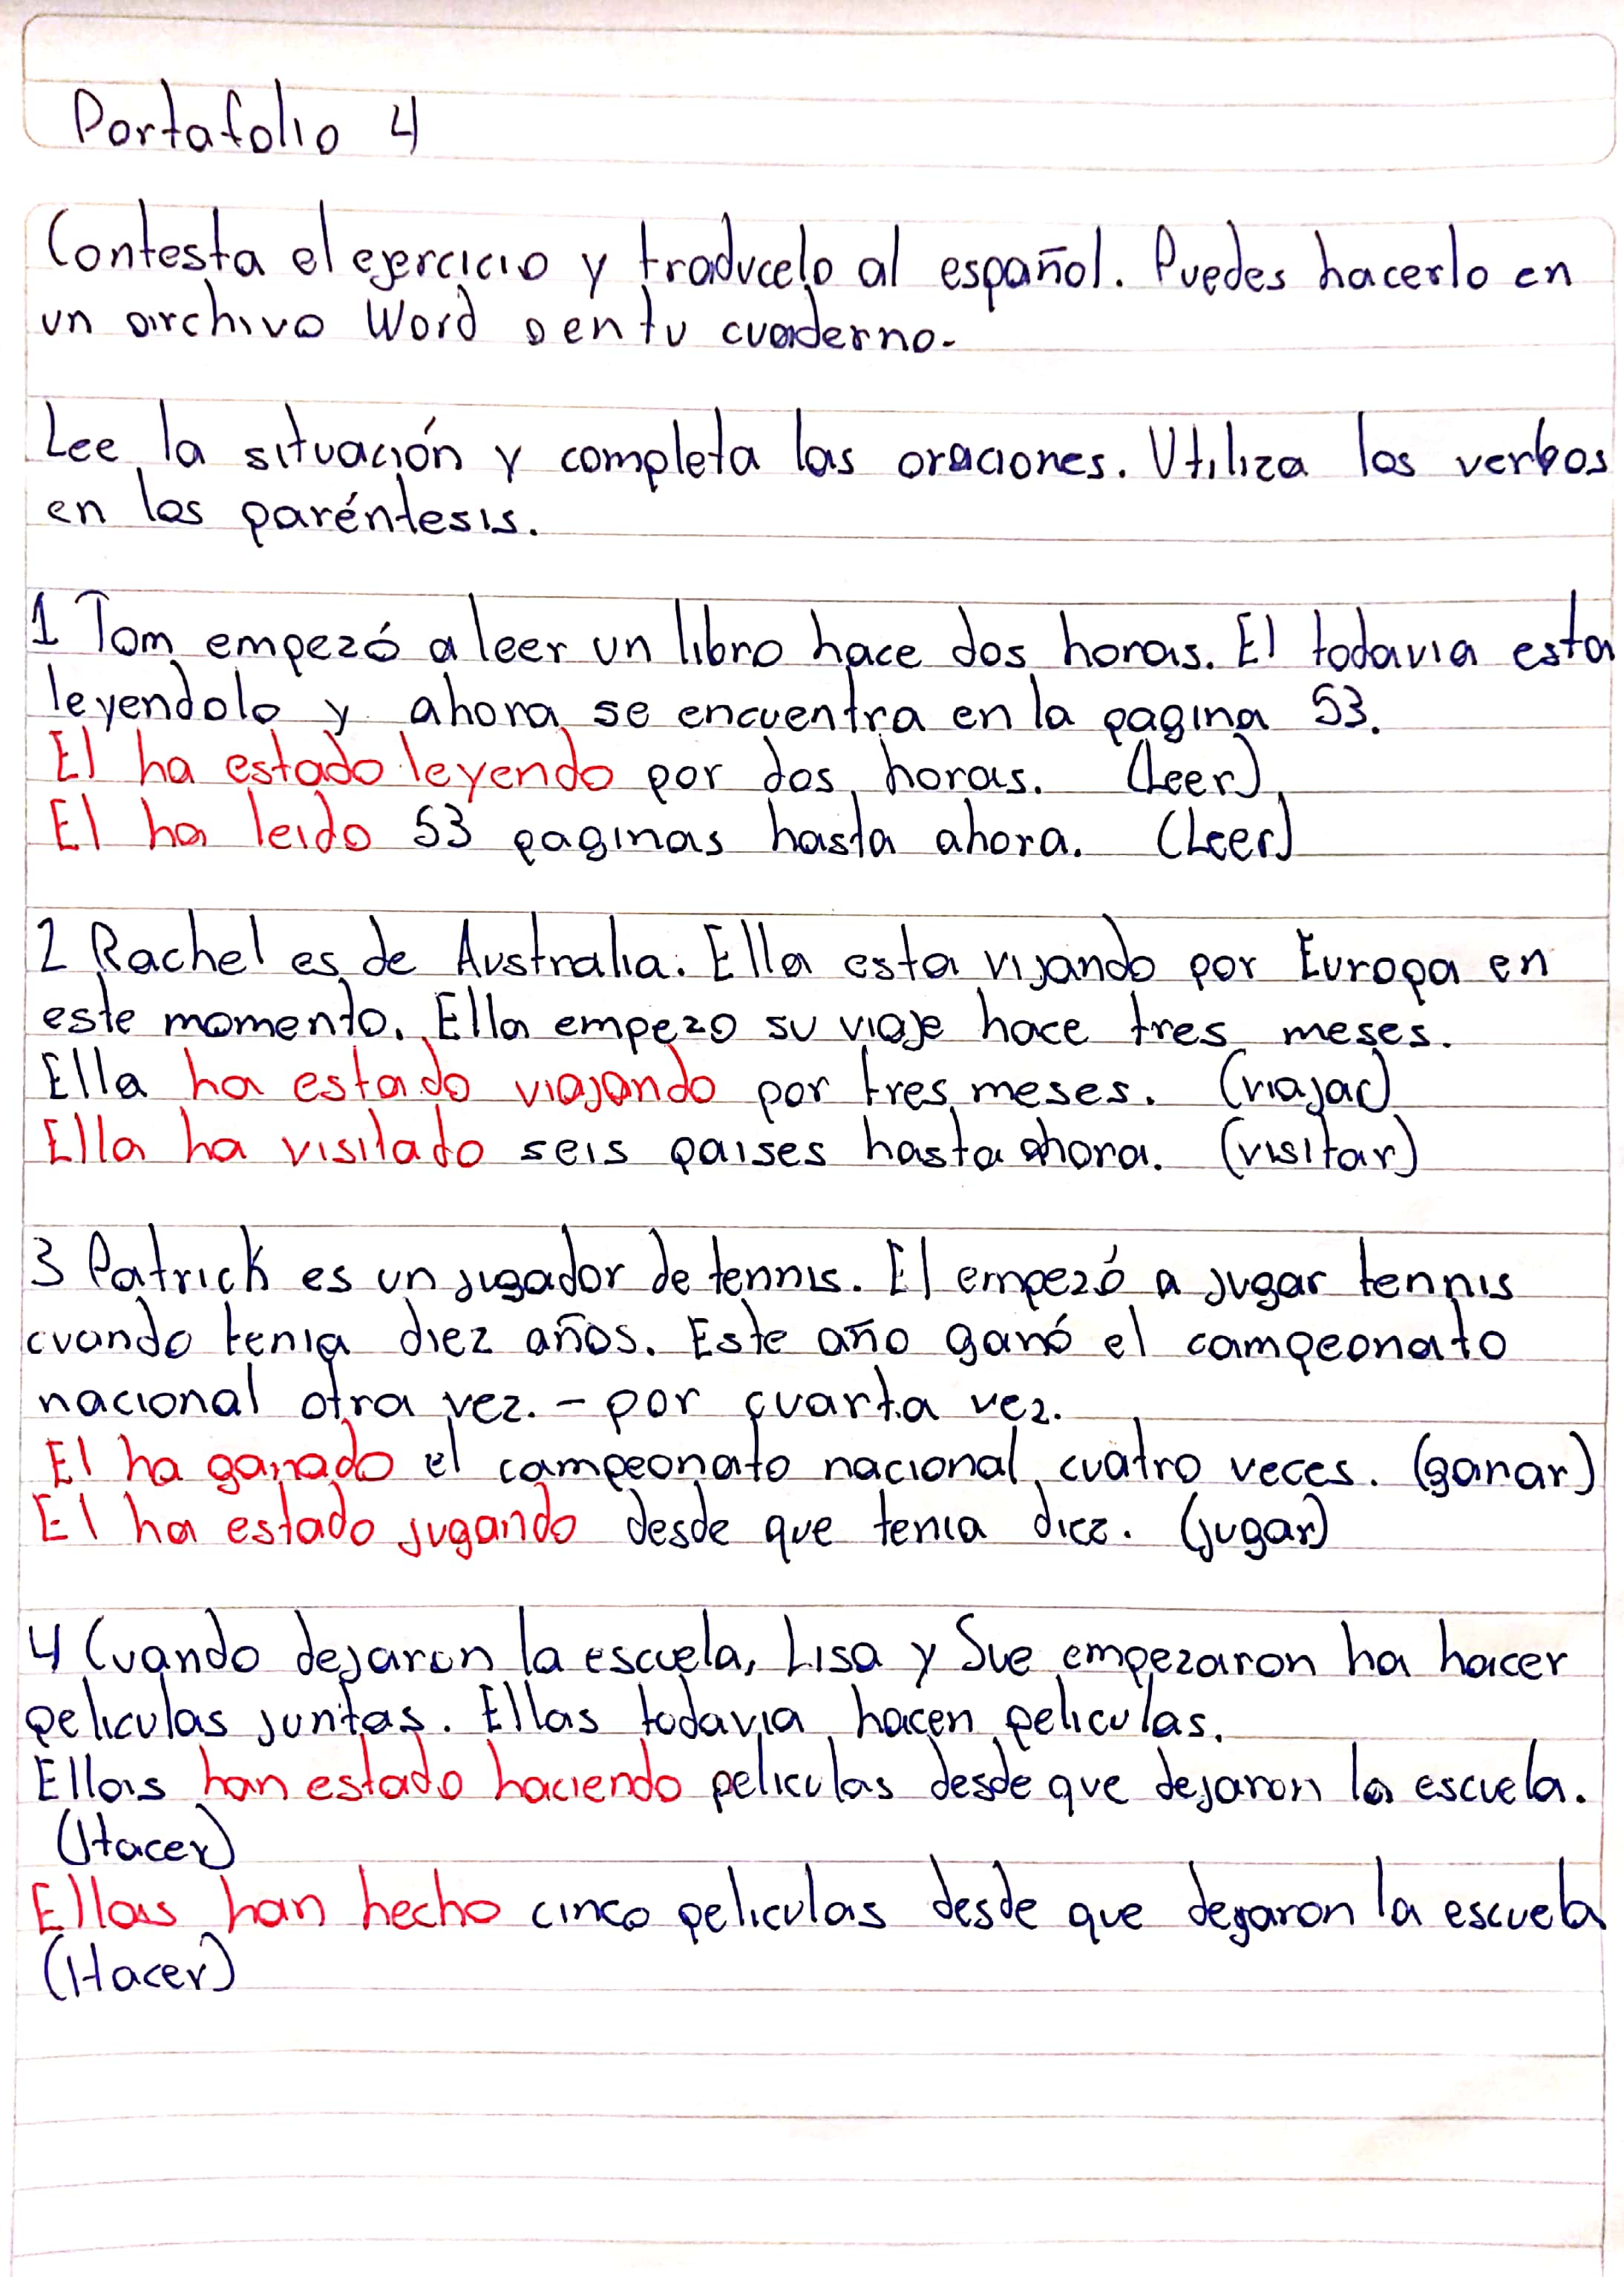 Portafolio 4
Contesta el ejercicio y traducelo al español. Puedes hacerlo en
un archivo Word o en tu cuaderno.
Lee la situación y completa las oraciones. Utiliza los verbos
en los paréntesis.
1 Tom empezó a leer un libro hace dos horas. El todavia esta
leyendolo y ahora se encuentra en la pagina 53.
El ha estado leyendo por dos horas. (Leer)
El ha leido 53 paginas hasta ahora. (Leer)
2 Rachel es de Australia. Ella esta vijando por Europa en
este momento. Ella empezo su viaje hace tres meses.
Ella ha estado viajando por tres meses. (viajar)
Ella ha visitado seis paises hasta ahora. (visitar)
3 Patrick es un jugador de tennis. El empezó a jugar tennis
cuando tenia diez años. Este año ganó el campeonato
nacional otra vez. - por cuarta vez.
El ha ganado el campeonato nacional cuatro veces. (ganar)
El ha estado jugando desde que tenia diez. (jugar)
4 Cuando dejaron la escuela, Lisa y Sue empezaron ha hacer
peliculas juntas. Ellas todavia hacen peliculas.
Ellas han estado haciendo peliculas desde que dejaron la escuela.
(Hacer)
Ellas han hecho cinco peliculas desde que dejaron la escuela
(Hacer)